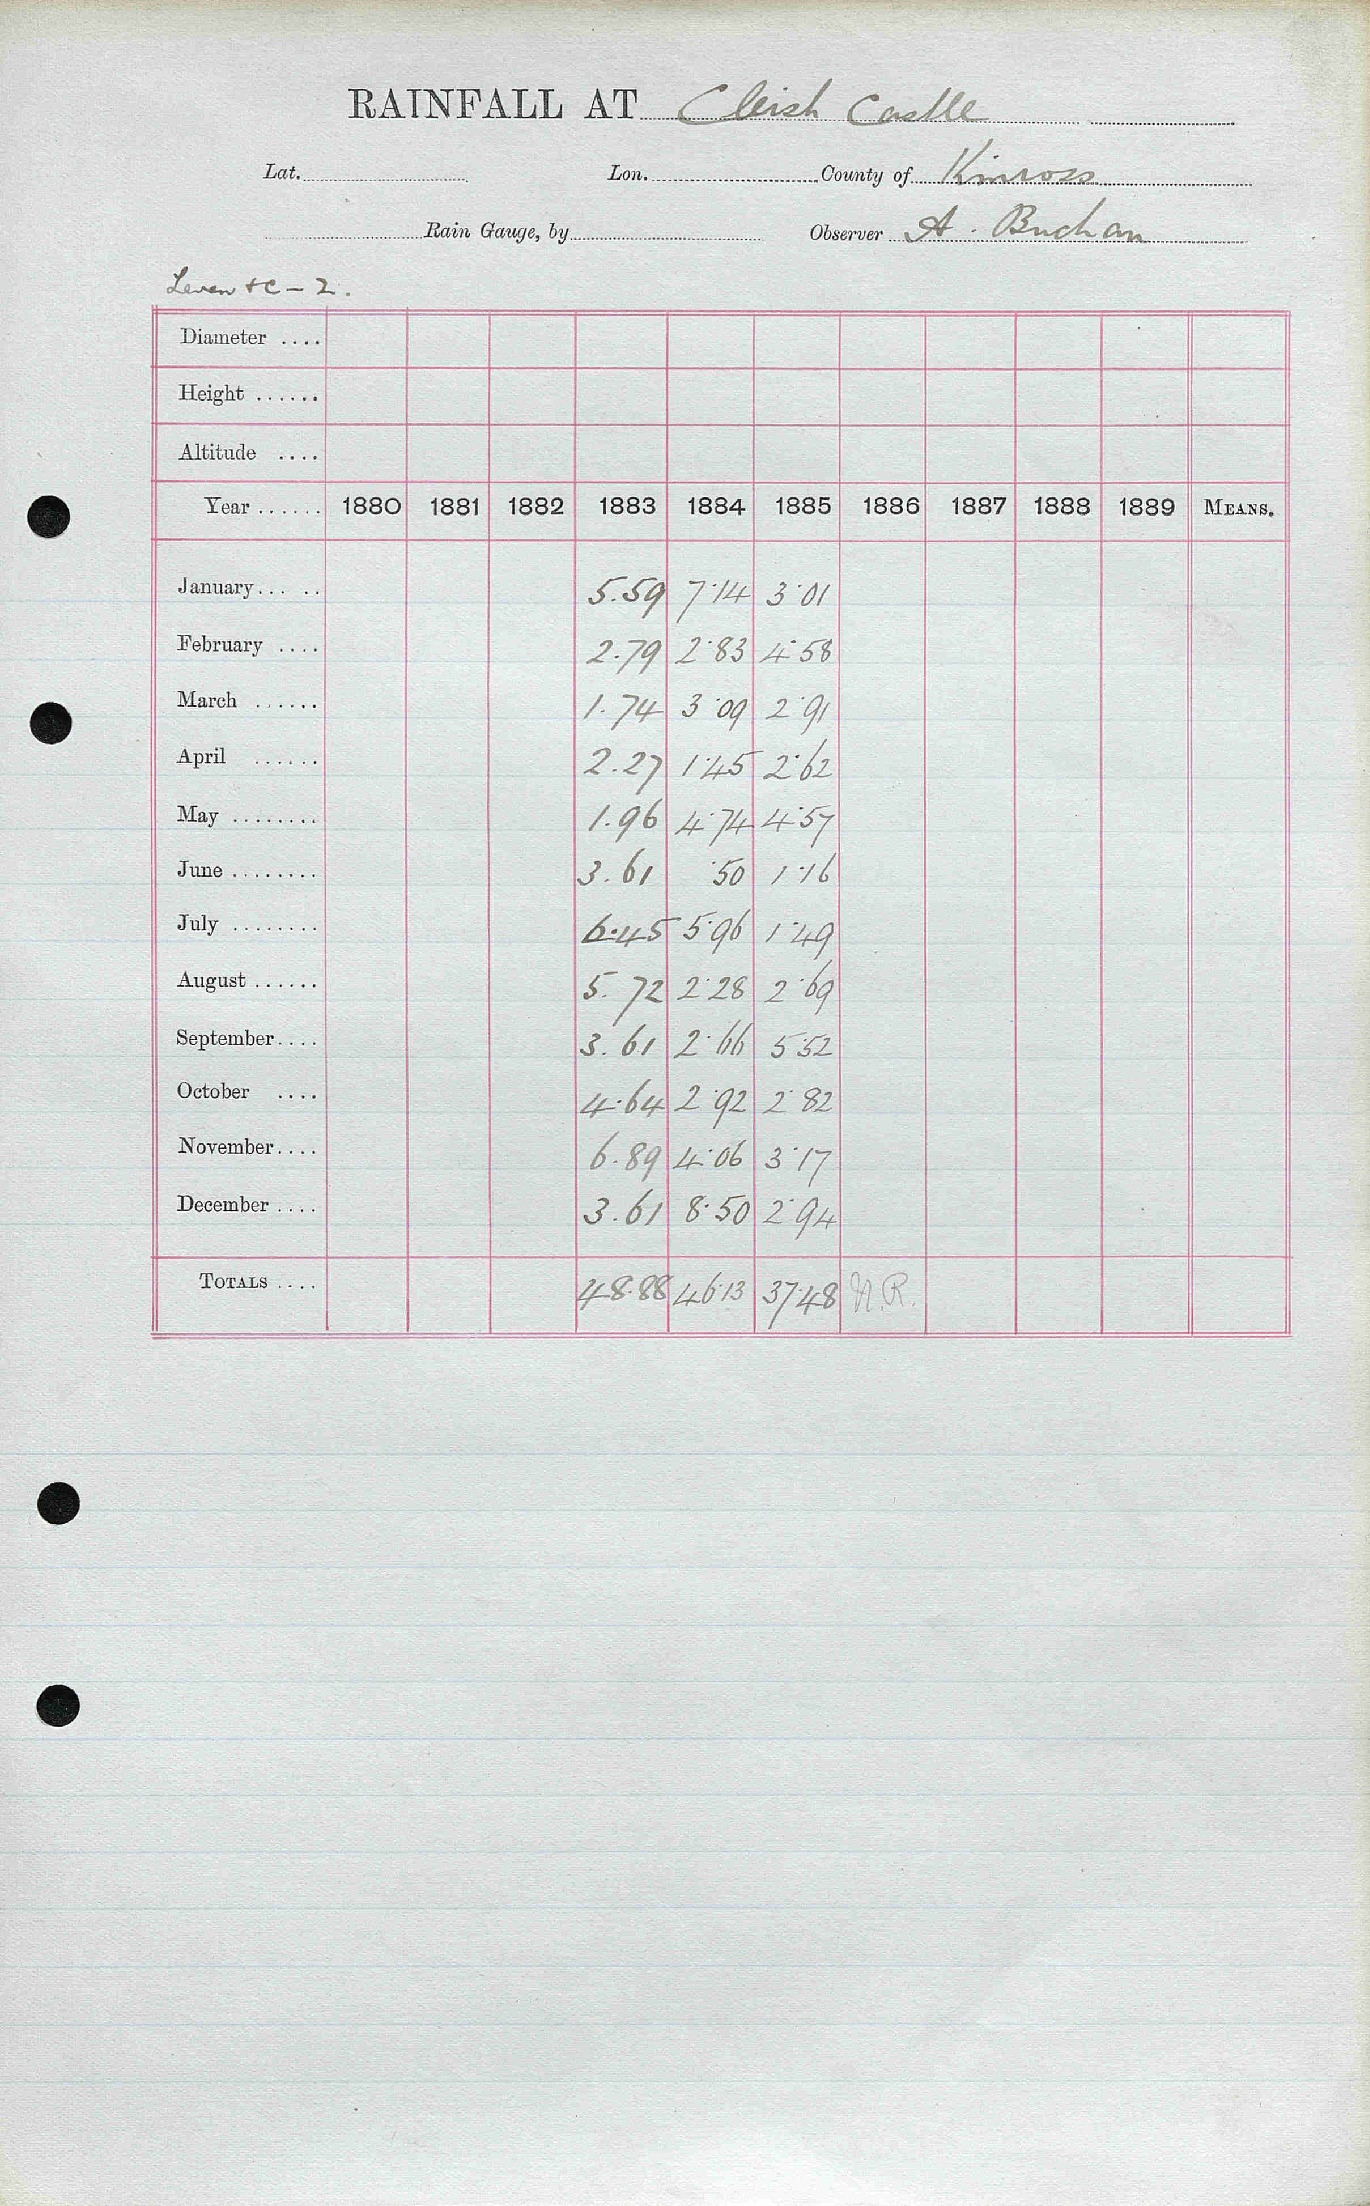 RAINFALL AT Cleish Castle
Lat. Lon. County of Kinross
Rain Gauge, by Observer A. Buchan
Leven &c - 2.
Diameter ....
Height ......
Altitude ....
Year ...... 1880 1881 1882 1883 1884 1885 1886 1887 1888 1889 MEANS.
January... .. 5.59 7.14 3.01
February .... 2.79 2.83 4.58
March ...... 1.74 3.09 2.91
April ...... 2.27 1.45 2.62
May ........ 1.96 4.74 4.57
June ........ 3.61 .50 1.16
July ........ 6.45 5.96 1.49
August ...... 5.72 2.28 2.69
September.... 3.61 2.66 5.52
October .... 4.64 2.92 2.82
November.... 6.89 4.06 3.17
December .... 3.61 8.50 2.94
TOTALS .... 48.88 46.13 37.48 N.R.